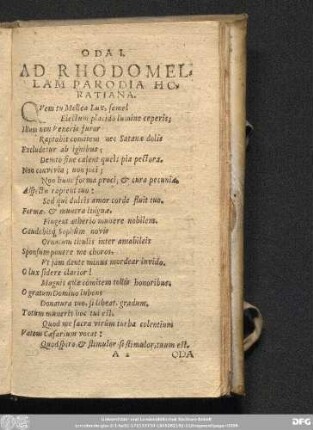 ODA I.
AD RHODOMEL
LAM PARODIA HO
RATIANA.
QVem tu Melica Lux, semel
Electum placido lumine ceperis;
Illum non Veneris furor
Raptabit comitem nec Satanæ dolis
Excludetur ab ignibus;
Demto sine calent queis pia pectora.
Non convivia; non joci;
Non hunc forma proci; & cura pecuniæ.
Aspectu rapient tuo:
Sed qui dulcis amor corde fluit tuo.
Formæ & munera insignia,
Fingent ætherio munere nobilem.
novis
titulis inter amabiles
ponere me choros.
Vt jam dente minus mordear invido.
O lux sidere clarior!
Magnis quæ comitem tollis honoribus.
O gratum Domino lubens
Donatura tuo, si libeat, gradum.
Totum muneris hoc tui est.
Quod me sacra virûm turba colentium
Vatem Cæsarium vocat:
Quod spiro & stimulor si stimulor, tuum est.
A 2 ODA
DFG